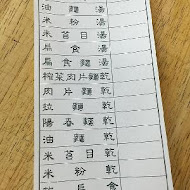 油麵湯
米粉湯
米苔目湯
扁食湯
扁食麵湯
榨菜肉片麵乾
肉片麵乾
拉麵乾
陽春麵乾
油麵乾
米苔目乾
米粉乾